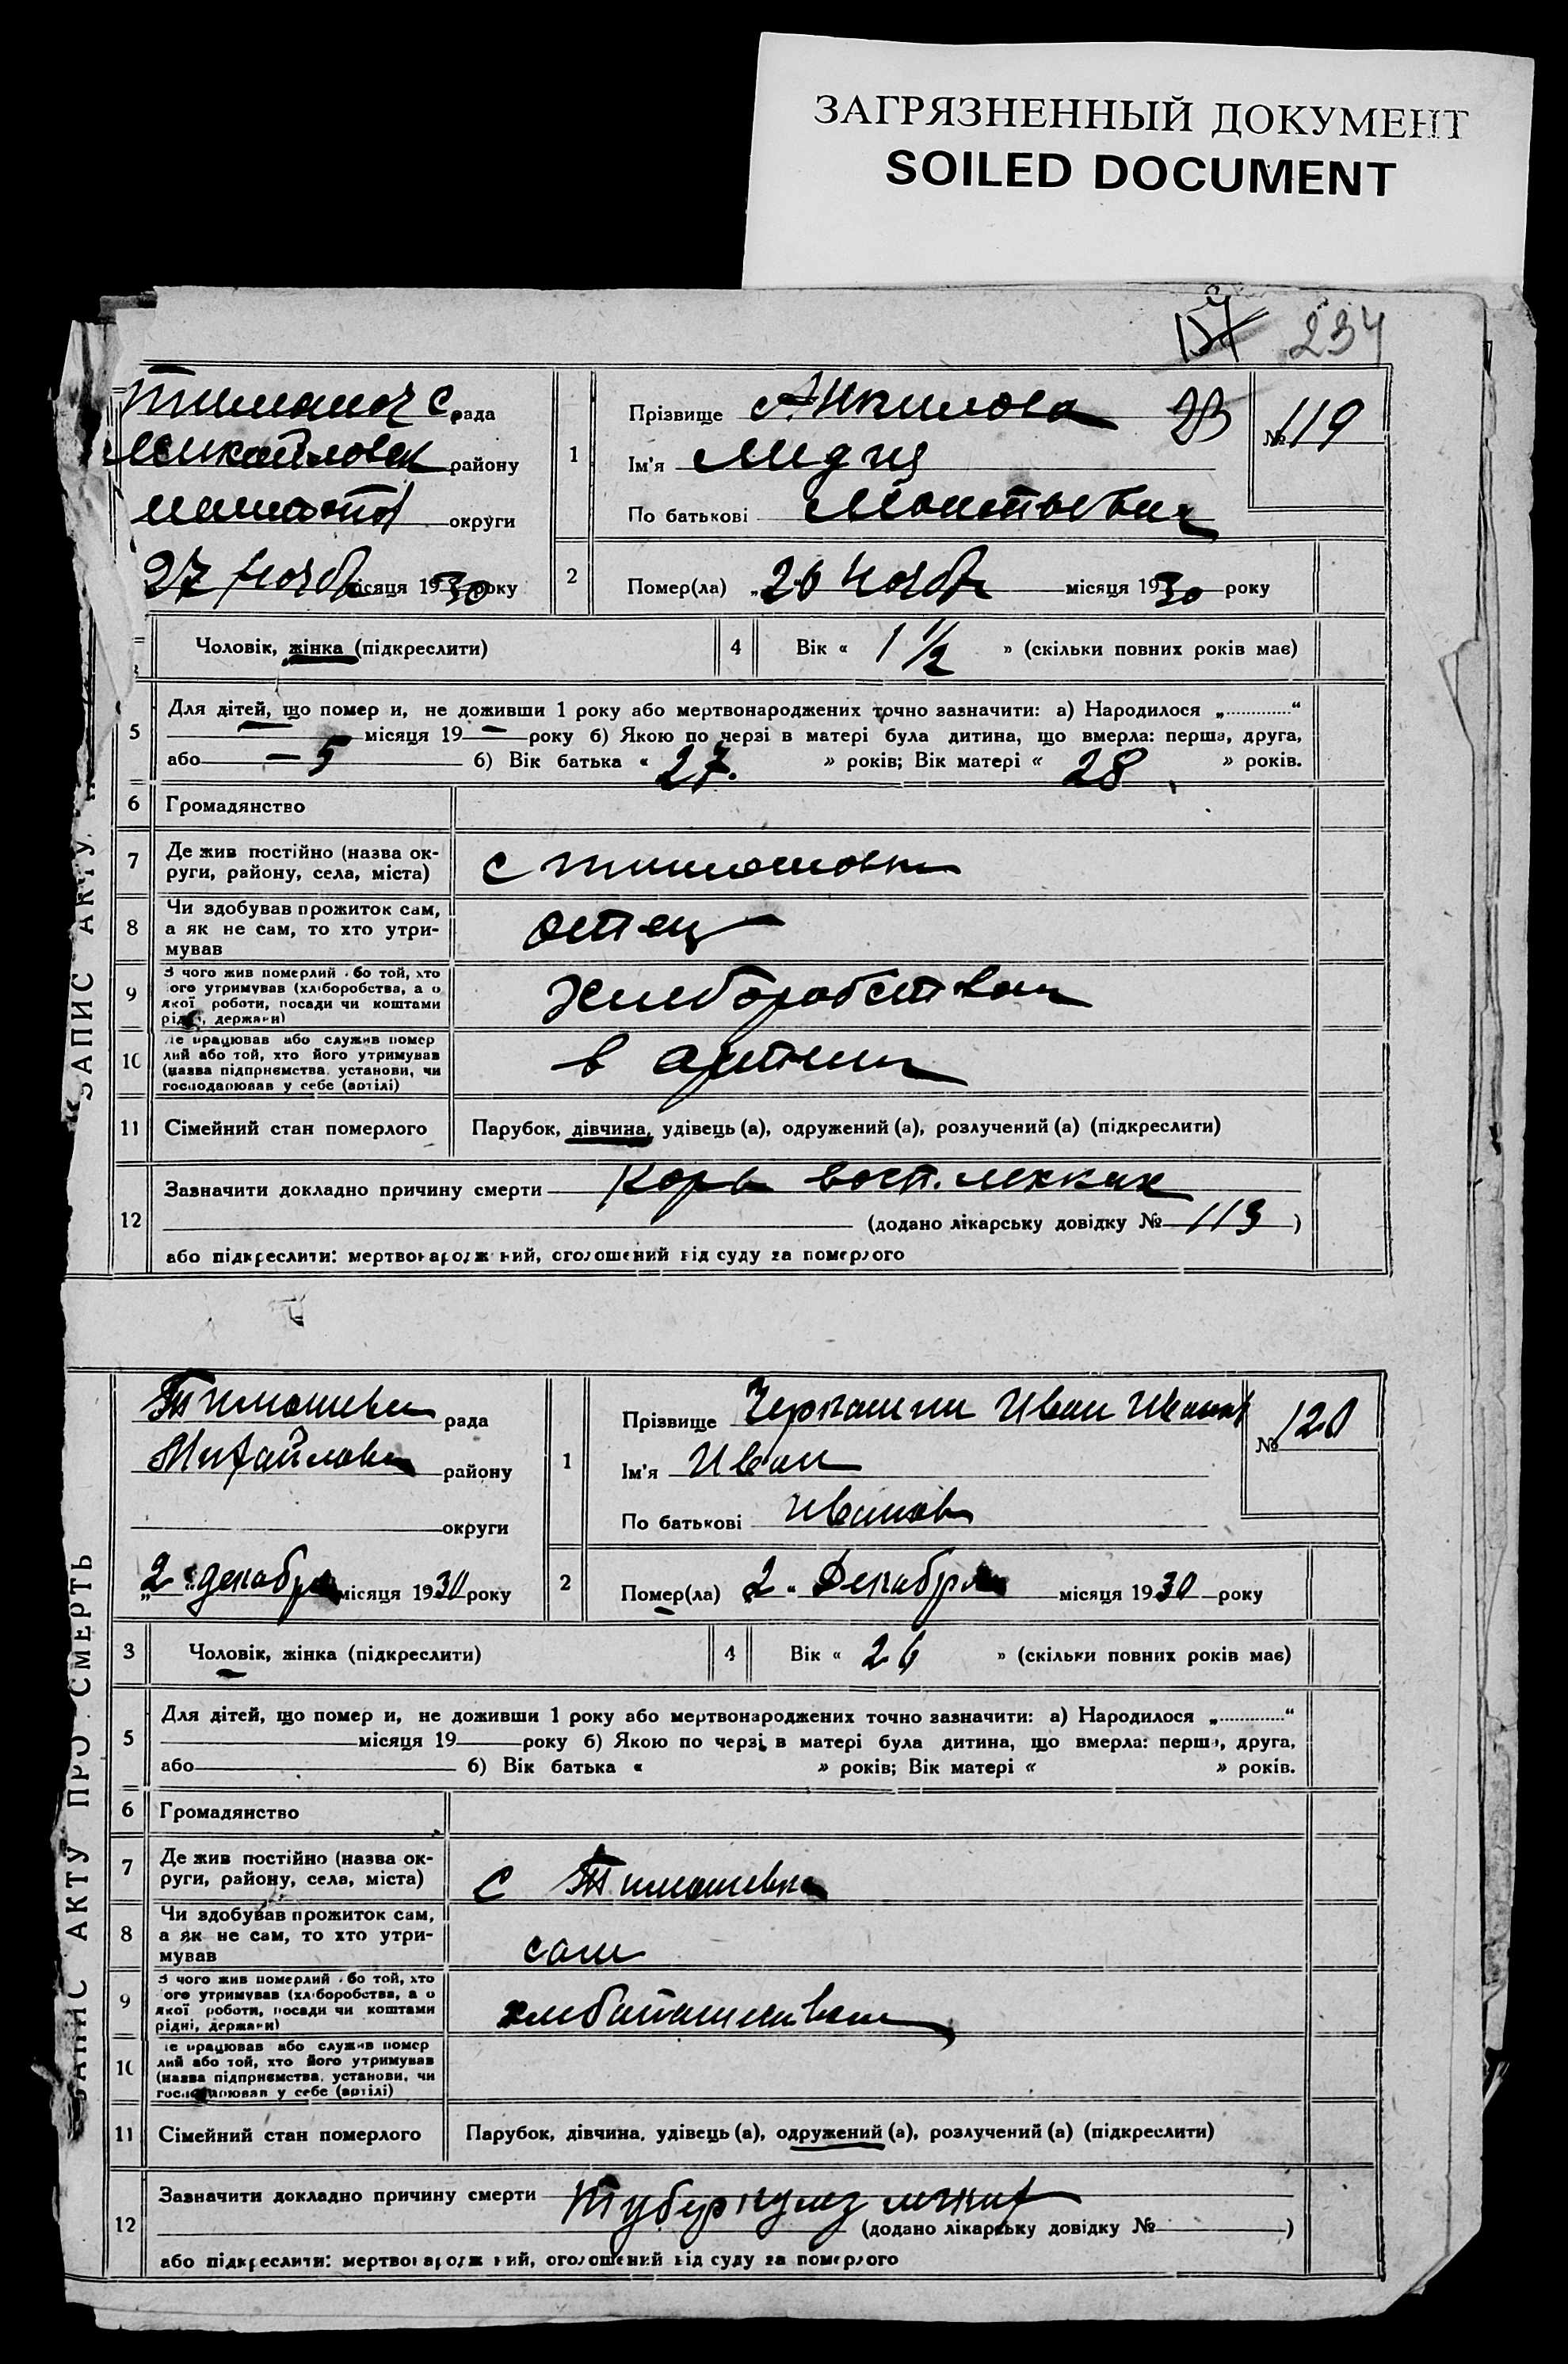 ЗАГРЯЗНЕННЫЙ ДОКУМЕНТ
SOILED DOCUMENT
234
рада
района
округи
27 Ноябр місяця 1930 року
1
Прізвище
№ 119
Ім'я Лидия
По батькові
2
Помер(ла) „26 Ноябр місяця 1930 року
Чоловік, жінка (підкреслити)
4
Вік « 1 1/2 » (скільки повних років має)
5
Для дітей, що помер и, не доживши 1 року або мертвонароджених точно зазначити: а) Народилося „............“
місяця 19 — року б) Якою по черзі в матері була дитина, що вмерла: перша, друга,
або — 5 б) Вік батька « 27. » років; Вік матері « 28 » років.
6
Громадянство
7
Де жив постійно (назва ок-
руги, району, села, міста)
с Тимошовка
8
Чи здобував прожиток сам,
а як не сам, то хто утри-
мував
отец
9
З чого жив померлий або той, хто
ого утримував (хліборобства, а о
якої роботи, посади чи коштами
рідні, держави)
Хлиборобством
10
Де працював або служив помер
лий або той, хто його утримував
(назва підприємства, установи, чи
господарював у себе (артілі)
в артили
11
Сімейний стан померлого
Парубок, дівчина, удівець (а), одружений (а), розлучений (а) (підкреслити)
12
Зазначити докладно причину смерти Корь восп. легких
(додано лікарську довідку № 113 )
або підкреслити: мертвонароджений, оголошений від суду за померлого
ЗАПИС АКТУ ПРО СМЕРТЬ
Тимошевка рада
Михайловск району
округи
„2“ декабря місяця 1930 року
1
Прізвище Черкашин Иван Иванов
№ 120
Ім'я Иван
По батькові Иванов
2
Помер(ла) „2“ Декабря місяця 1930 року
3
Чоловік, жінка (підкреслити)
4
Вік « 26 » (скільки повних років має)
5
Для дітей, що помер и, не доживши 1 року або мертвонароджених точно зазначити: а) Народилося „............“
місяця 19 року б) Якою по черзі в матері була дитина, що вмерла: перша, друга,
або б) Вік батька « » років; Вік матері « » років.
6
Громадянство
7
Де жив постійно (назва ок-
руги, району, села, міста)
С Тимошевка
8
Чи здобував прожиток сам,
а як не сам, то хто утри-
мував
сам
9
З чого жив померлий або той, хто
ого утримував (хліборобства, а о
якої роботи, посади чи коштами
рідні, держави)
10
Де працював або служив помер
лий або той, хто його утримував
(назва підприємства, установи, чи
господарював у себе (артілі)
11
Сімейний стан померлого
Парубок, дівчина, удівець (а), одружений (а), розлучений (а) (підкреслити)
12
Зазначити докладно причину смерти Туберкулез легких
(додано лікарську довідку № )
або підкреслити: мертвонароджений, оголошений від суду за померлого